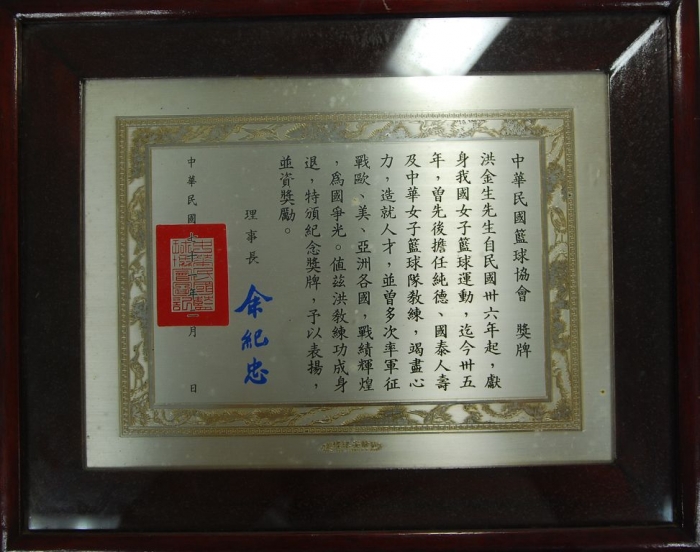 中華民國籃球協會 獎牌
洪金生先生自民國卅六年起，獻
身我國女子籃球運動，迄今卅五
年，曾先後擔任純德、國泰人壽
及中華女子籃球隊教練，竭盡心
力，造就人才，並曾多次率軍征
戰歐、美、亞洲各國，戰績輝煌
，為國爭光。值茲洪教練功成身
退，特頒紀念獎牌，予以表揚，
並資獎勵。
理事長 余紀忠
中華民國七十一年 月 日